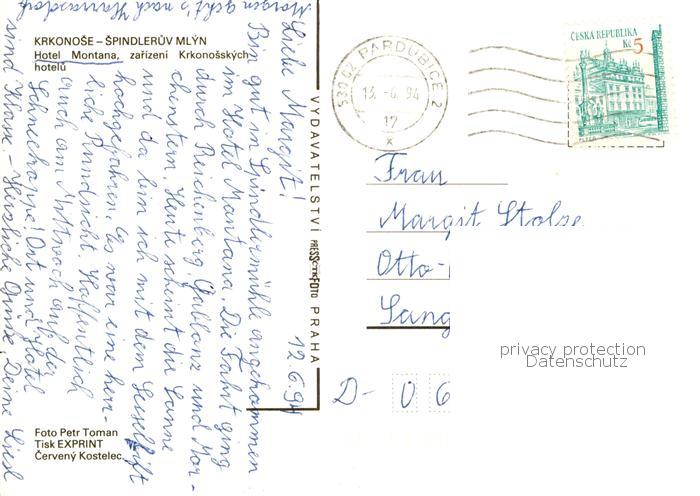 KRKONOŠE – ŠPINDLERŮV MLÝN
Hotel Montana, zařízení Krkonošských
hotelů
12.6.94
Liebe Margit!
Bin gut in Spindlermühle angekommen
im Hotel Montana. Die Fahrt ging
durch Reichenberg, Gablonz und Mor-
chenstern. Heute scheint die Sonne
und da bin ich mit dem Sessellift
hochgefahren. Es war eine herr-
liche Rundsicht. Hoffentlich
auch am Mittwoch auf der
Schneekoppe! Ort und Hotel
sind Klasse. – Herzliche Grüße, Deine Liesl
Morgen geht's nach Harrasdorf
VYDAVATELSTVÍ PRESSFOTO PRAHA
Foto Petr Toman
Tisk EXPRINT
Červený Kostelec
530 02 PARDUBICE 2
13.-6.94
17
x
ČESKÁ REPUBLIKA
Kč 5
Frau
Margit Stolze
Otto-
Sang
D- 06
privacy protection
Datenschutz